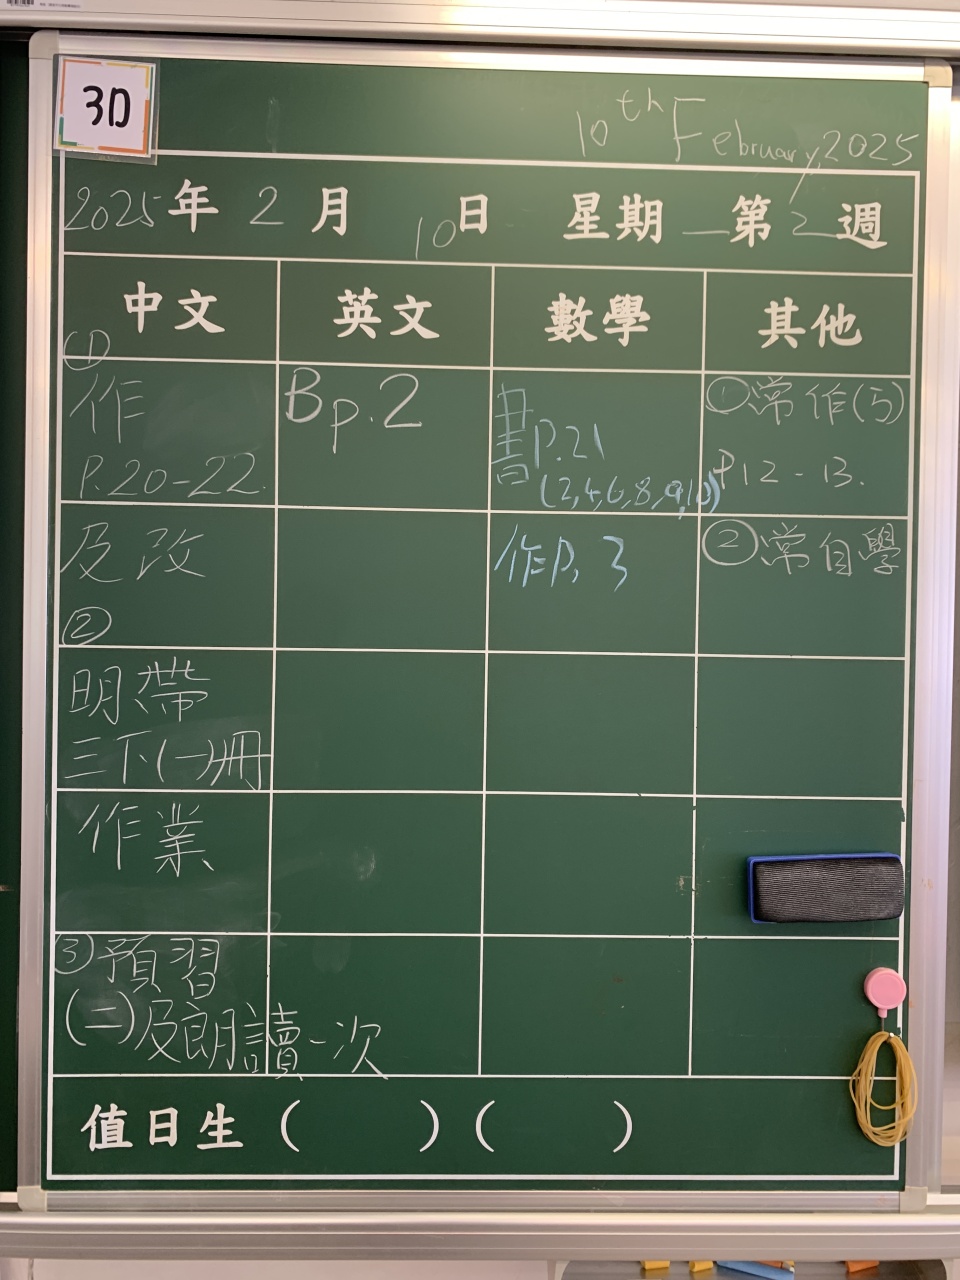 3D
10th February, 2025
2025年 2 月 10日 星期 一 第 2 週
中文 英文 數學 其他
①
作
P.20-22
及改
②
明帶
三下(一)冊
作業
③預習
(二)及朗讀一次
Bp.2
書P.21
(2,4,6,8,9,10)
作P. 3
①常作(5)
P12-13.
②常自學
值日生( )( )